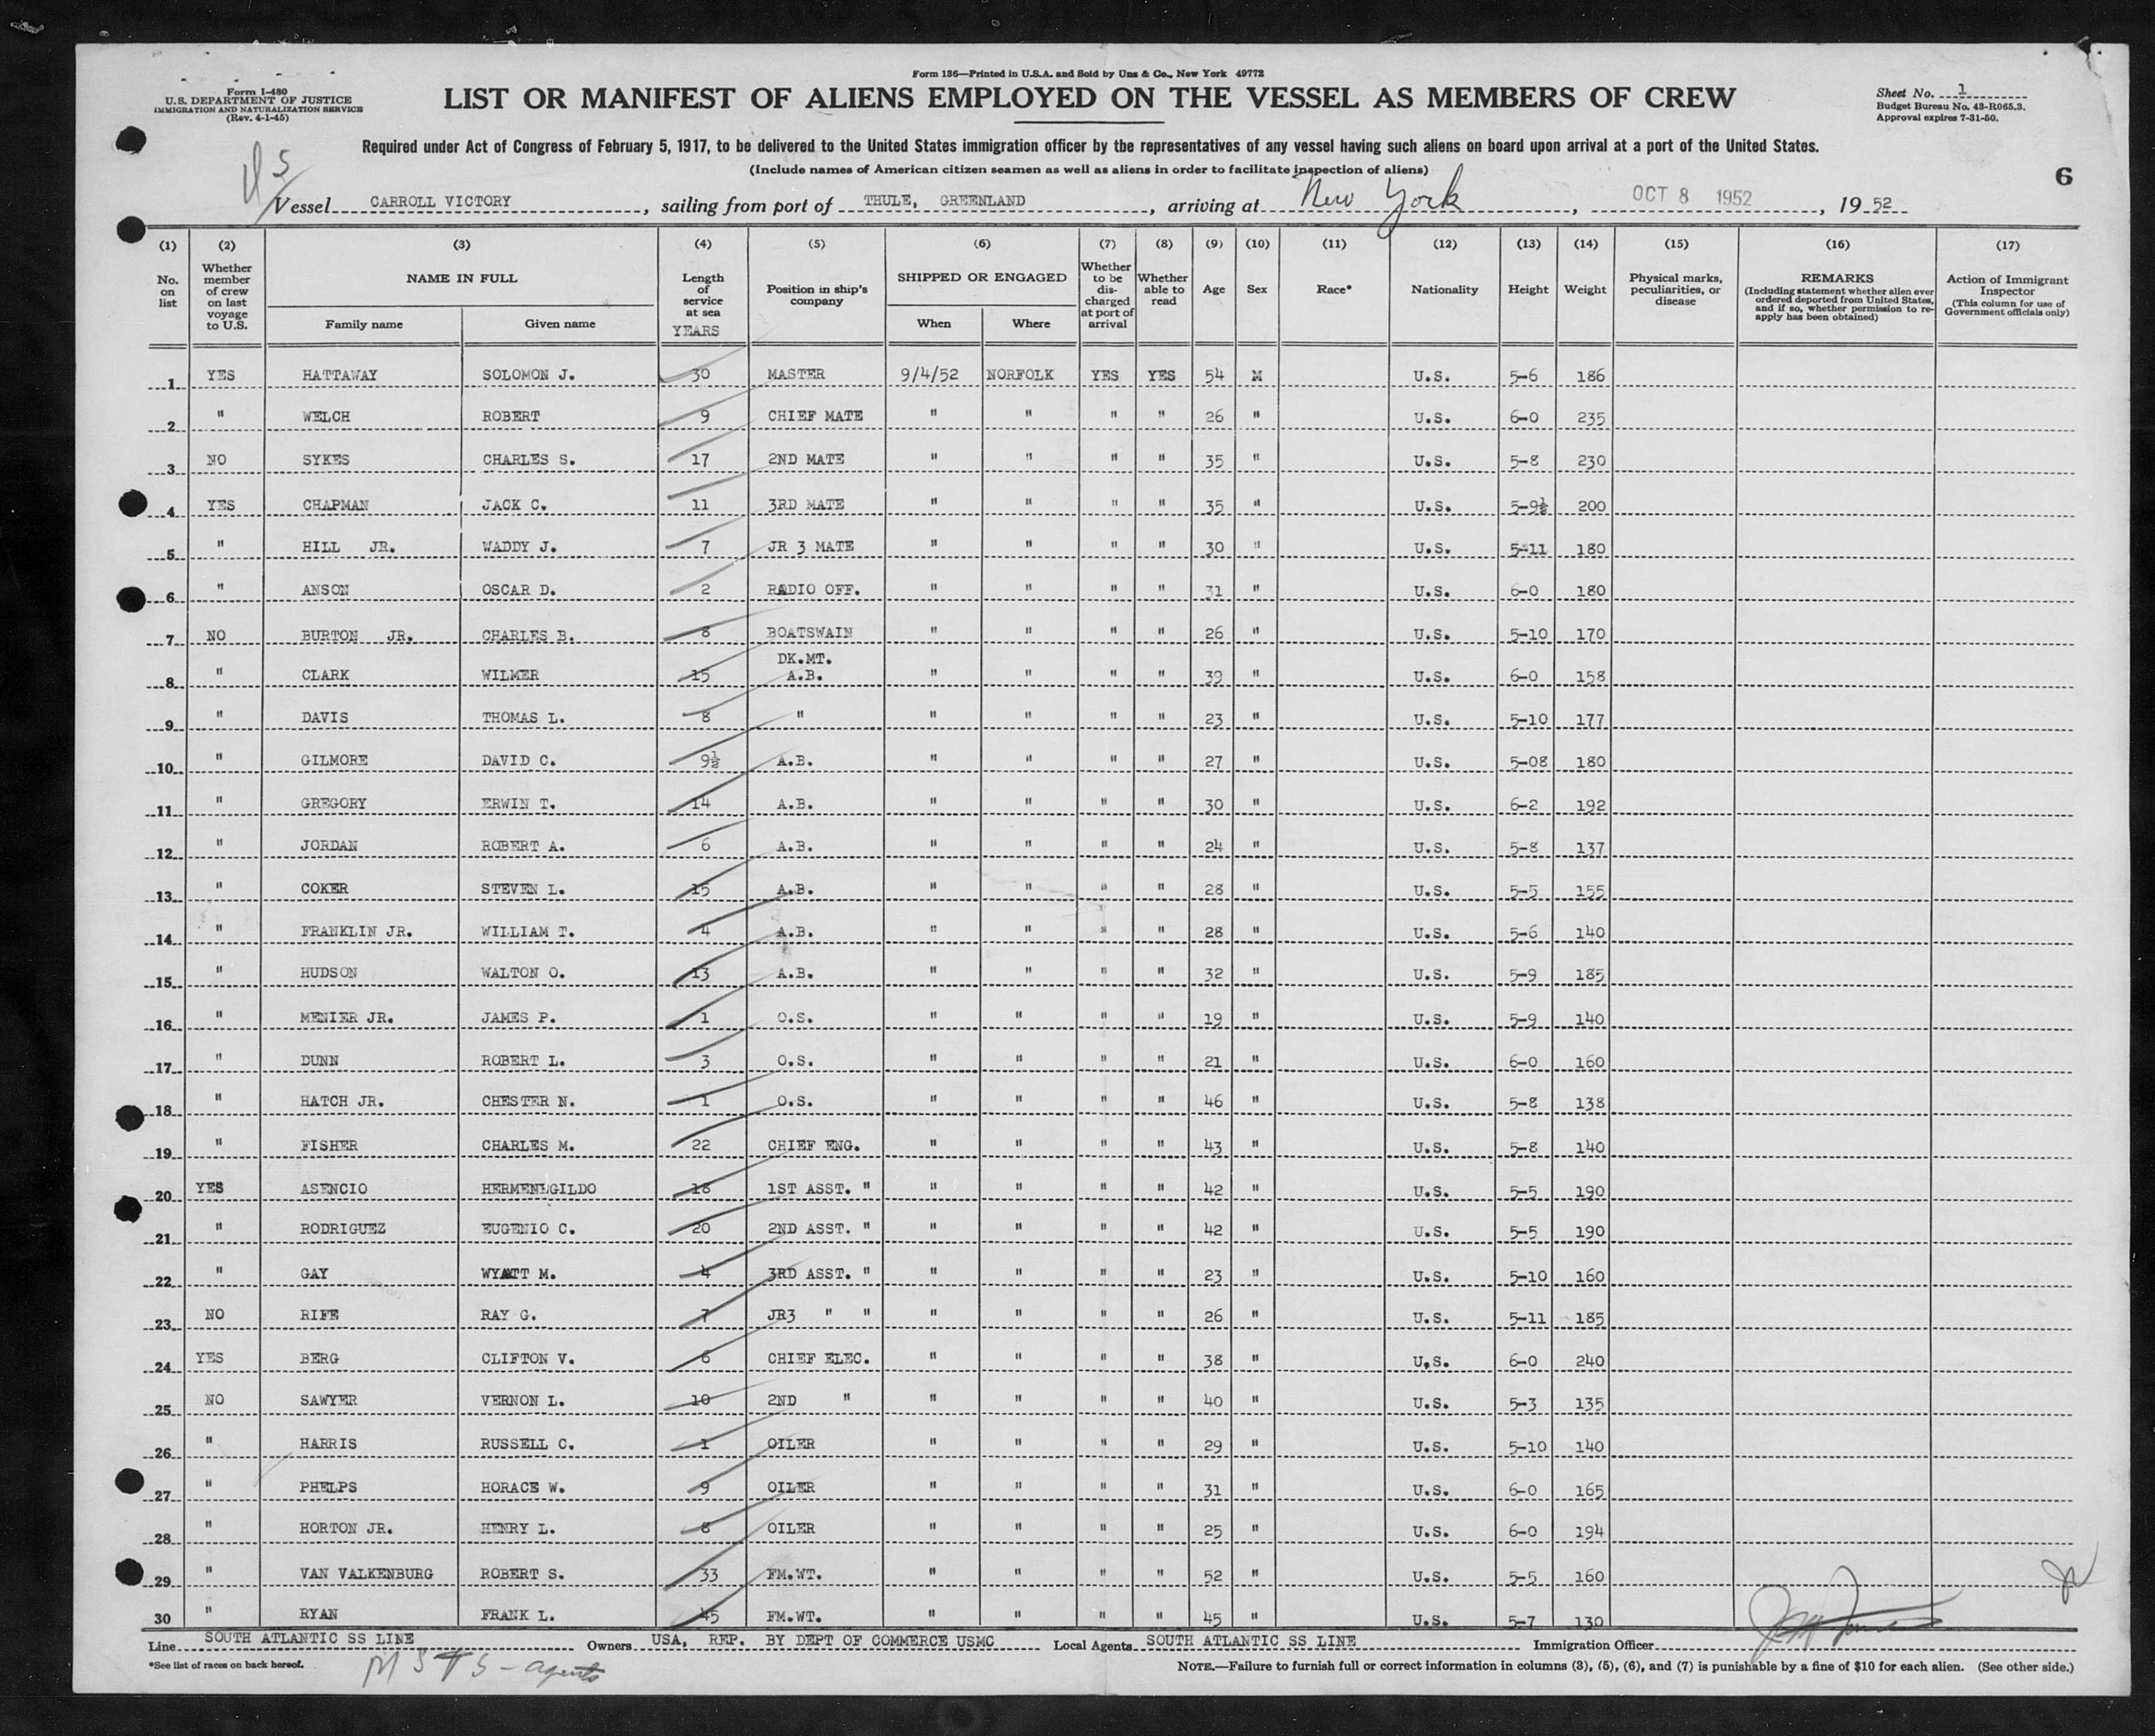 Form 136—Printed in U.S.A. and Sold by Unz & Co., New York 49772
Form I-480
U.S. DEPARTMENT OF JUSTICE
IMMIGRATION AND NATURALIZATION SERVICE
(Rev. 4-1-45)
LIST OR MANIFEST OF ALIENS EMPLOYED ON THE VESSEL AS MEMBERS OF CREW
Sheet No. 1
Budget Bureau No. 43-R065.3.
Approval expires 7-31-50.
Required under Act of Congress of February 5, 1917, to be delivered to the United States immigration officer by the representatives of any vessel having such aliens on board upon arrival at a port of the United States.
(Include names of American citizen seamen as well as aliens in order to facilitate inspection of aliens)
6
Vessel CARROLL VICTORY, sailing from port of THULE, GREENLAND, arriving at New York, OCT 8 1952, 19 52
(1) (2) (3) (4) (5) (6) (7) (8) (9) (10) (11) (12) (13) (14) (15) (16) (17)
No. on list
Whether member of crew on last voyage to U.S.
NAME IN FULL
Family name Given name
Length of service at sea YEARS
Position in ship's company
SHIPPED OR ENGAGED
When Where
Whether to be discharged at port of arrival
Whether able to read
Age Sex Race* Nationality Height Weight
Physical marks, peculiarities, or disease
REMARKS
(Including statement whether alien ever ordered deported from United States, and if so, whether permission to re-apply has been obtained)
Action of Immigrant Inspector
(This column for use of Government officials only)
1 YES HATTAWAY SOLOMON J. 30 MASTER 9/4/52 NORFOLK YES YES 54 M U.S. 5-6 186
2 " WELCH ROBERT 9 CHIEF MATE " " " " 26 " U.S. 6-0 235
3 NO SYKES CHARLES S. 17 2ND MATE " " " " 35 " U.S. 5-8 230
4 YES CHAPMAN JACK C. 11 3RD MATE " " " " 35 " U.S. 5-9½ 200
5 " HILL JR. WADDY J. 7 JR 3 MATE " " " " 30 " U.S. 5-11 180
6 " ANSON OSCAR D. 2 RADIO OFF. " " " " 31 " U.S. 6-0 180
7 NO BURTON JR. CHARLES B. 8 BOATSWAIN " " " " 26 " U.S. 5-10 170
8 " CLARK WILMER 15 DK.MT. A.B. " " " " 39 " U.S. 6-0 158
9 " DAVIS THOMAS L. 8 " " " " " 23 " U.S. 5-10 177
10 " GILMORE DAVID C. 9½ A.B. " " " " 27 " U.S. 5-08 180
11 " GREGORY ERWIN T. 14 A.B. " " " " 30 " U.S. 6-2 192
12 " JORDAN ROBERT A. 6 A.B. " " " " 24 " U.S. 5-8 137
13 " COKER STEVEN L. 15 A.B. " " " " 28 " U.S. 5-5 155
14 " FRANKLIN JR. WILLIAM T. 4 A.B. " " " " 28 " U.S. 5-6 140
15 " HUDSON WALTON O. 13 A.B. " " " " 32 " U.S. 5-9 185
16 " MENIER JR. JAMES P. 1 O.S. " " " " 19 " U.S. 5-9 140
17 " DUNN ROBERT L. 3 O.S. " " " " 21 " U.S. 6-0 160
18 " HATCH JR. CHESTER N. 1 O.S. " " " " 46 " U.S. 5-8 138
19 " FISHER CHARLES M. 22 CHIEF ENG. " " " " 43 " U.S. 5-8 140
20 YES ASENCIO HERMENEGILDO 18 1ST ASST. " " " " " 42 " U.S. 5-5 190
21 " RODRIGUEZ EUGENIO C. 20 2ND ASST. " " " " " 42 " U.S. 5-5 190
22 " GAY WYATT M. 4 3RD ASST. " " " " " 23 " U.S. 5-10 160
23 NO RIFE RAY G. 7 JR3 " " " " " " 26 " U.S. 5-11 185
24 YES BERG CLIFTON V. 6 CHIEF ELEC. " " " " 38 " U.S. 6-0 240
25 NO SAWYER VERNON L. 10 2ND " " " " " 40 " U.S. 5-3 135
26 " HARRIS RUSSELL C. 1 OILER " " " " 29 " U.S. 5-10 140
27 " PHELPS HORACE W. 9 OILER " " " " 31 " U.S. 6-0 165
28 " HORTON JR. HENRY L. 8 OILER " " " " 25 " U.S. 6-0 194
29 " VAN VALKENBURG ROBERT S. 33 FM.WT. " " " " 52 " U.S. 5-5 160
30 " RYAN FRANK L. 45 FM.WT. " " " " 45 " U.S. 5-7 130
Line SOUTH ATLANTIC SS LINE Owners USA, REP. BY DEPT OF COMMERCE USMC Local Agents SOUTH ATLANTIC SS LINE Immigration Officer
*See list of races on back hereof.
MSTS - agents
NOTE.—Failure to furnish full or correct information in columns (3), (5), (6), and (7) is punishable by a fine of $10 for each alien. (See other side.)